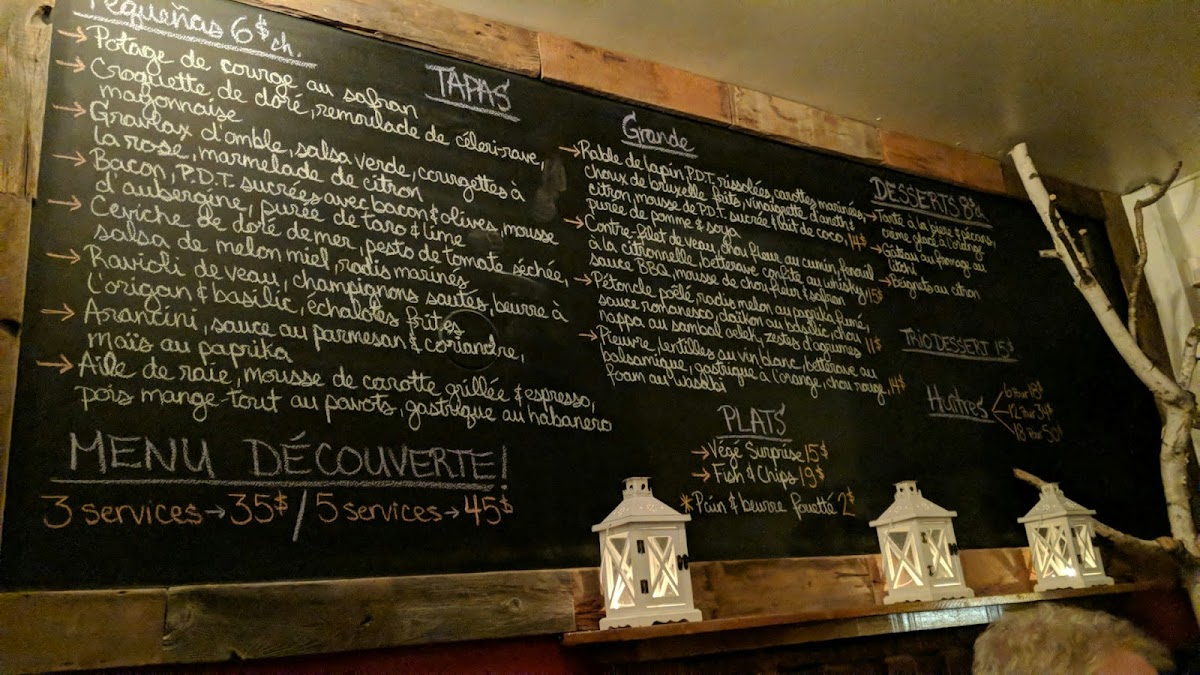 Pequeñas 6$ ch.
→ Potage de courge au safran
→ Croquette de doré, remoulade de céleri-rave,
mayonnaise
→ Gravlax d'omble, salsa verde, courgettes à
la rose, marmelade de citron
→ Bacon, P.D.T. sucrées avec bacon & olives, mousse
d'aubergine, purée de taro & lime
→ Ceviche de doré de mer, pesto de tomate séchée,
salsa de melon miel, radis marinés
→ Ravioli de veau, champignons sautés, beurre à
l'origan & basilic, échalotes frites
→ Arancini, sauce au parmesan & coriandre,
maïs au paprika
→ Aile de raie, mousse de carotte grillée & espresso,
pois mange-tout au pavots, gastrique au habanero
MENU DÉCOUVERTE!
3 services → 35$ / 5 services → 45$
TAPAS
Grande
→ Rable de lapin, P.D.T. rissolées, carottes marinées,
choux de bruxelle frits, vinaigrette d'aneth &
citron, mousse de P.D.T. sucrée & lait de coco, 14$
purée de pomme & soya
→ Contre-filet de veau, chou fleur au cumin, fenouil
à la citronnelle, betterave confite au whisky 15$
sauce BBQ, mousse de chou fleur & safran
→ Pétoncle poêlé, radis melon au paprika fumé,
sauce romanesco, daikon au basilic, chou
nappa au sambal oelek, zestes d'agrumes 11$
→ Pieuvre, lentilles au vin blanc, betterave au
balsamique, gastrique à l'orange, chou rouge, 14$
foam au wasabi
PLATS
→ Végé Surprise 15$
→ Fish & Chips 19$
* Pain & beurre fouetté 2$
DESSERTS 8$
→ Tarte à la poire & pécans,
crème glacé à l'orange
→ Gâteau au fromage au
litchi
→ Beignets au citron
TRIO DESSERT 15$
Huîtres
6 Pour 18$
12 Pour 34$
18 Pour 50$